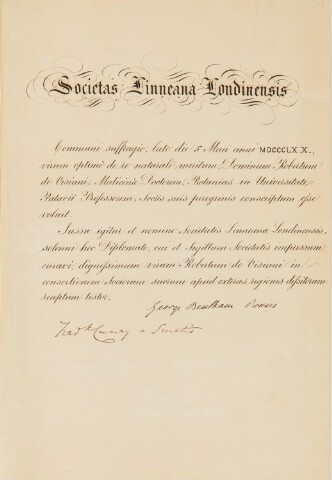 Societas Linneana Londinensis
Communi suffragio, lato die 5 Maii anni MDCCCLXX.
virum optime de re naturali meritum Dominum Robertum
de Visiani, Medicinæ Doctorem, Botanices in Universitate
Patavii Professorem, Sociis suis peregrinis conscriptum esse
voluit.
Jussu igitur et nomine Societatis Linneanæ Londinensis,
solenni hoc Diplomate, cui et Sigillum Societatis impressum
curavi dignissimum virum Robertum de Visiani in
consortionem Sociorum suorum apud exteras regiones dissitorum
receptum testor.
George Bentham Præses
Fredk Currey a Secretis